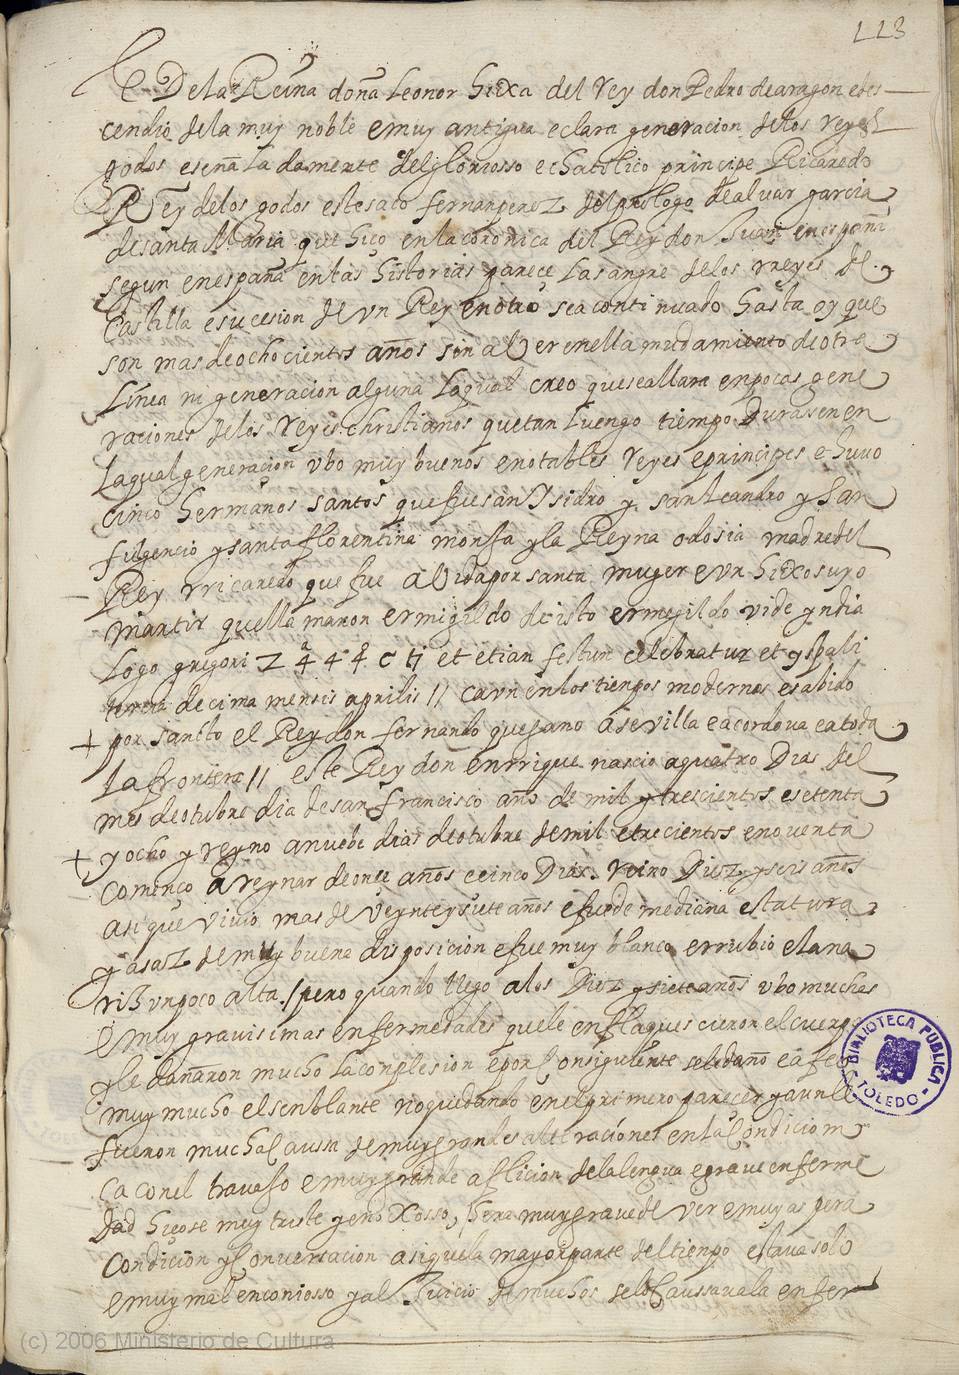 113
E De la Reina doña Leonor hixa del rey don Pedro de aragon e des
cendio de la muy noble e muy antigua e clara generacion de los reyes
godos e señaladamente del gloriosso e chatolico principe Ricaredo
Rey de los godos este saco fernan perez del prologo de alvar garcia
de santa Maria que hiço en la coronica del Rey don Juan
segun en españa en las historias parece la sangre de los rreyes de
Castilla e sucesion de un Rey en otro sea continuado hasta oy que
son mas de ochocientos años sin aver en ella mudamiento de otra
Linea ni generacion alguna la qual creo que se allara en pocas gene
raciones de los reyes christianos que tan luengo tiempo durasen en
la qual generaçion ubo muy buenos e notables reyes e principes e huvo
cinco hermanos santos que fue san ysidro y san leandro y san
fulgencio y santa florentina monja y la Reyna odosia madre del
Rey rricaredo que fue avida por santa muger e un hixo suyo
martir que llamaron ermigildo de isto ermegildo vide yn dia
Logo gregori 2 4 4 4 c ti et etian festun celebratur et yspali
tercia decima mensis aprilis // e aun en los tienpos modernos es abido
+ por sancto el Rey don fernando que gano a sevilla e a cordova e a toda
La frontera // este Rey don enrrique nascio a quatro Dias del
mes de otubre dia de san francisco año de mil y trescientos e setenta
+ y ocho y reyno a nuebe dias de otubre de mil e trecientos e noventa
Comenco a reynar de once años e cinco Dias. reino Diez y seis años
asi que vivio mas de veynte y siete años e fue de mediana estatura
y asaz de muy buena disposicion e fue muy blanco e rrubio e la na
riz un poco alta / pero quando llego a los Diez y siete años ubo muchas
e muy gravisimas enfermedades que le enflaquescieron el cuerpo
y le dañaron mucho la conplesion e por consiguiente se le daño e a feo
muy mucho el senblante no quedando en el primero parecer y aun le
fueron mucha caussa de muy grandes alteraciones en la condicion
ca con el travajo e muy grande aflicion de la lengua e grave enferme
dad hiçose muy triste y enoxosso, hera muy grave de ver e muy aspera
condicion y conversacion asi que la mayor parte del tiempo estava solo
e muy mal enconiosso y al Juicio de muchos se lo caussava la enfer
BIBLIOTECA PUBLICA
TOLEDO
(c) 2006 Ministerio de Cultura